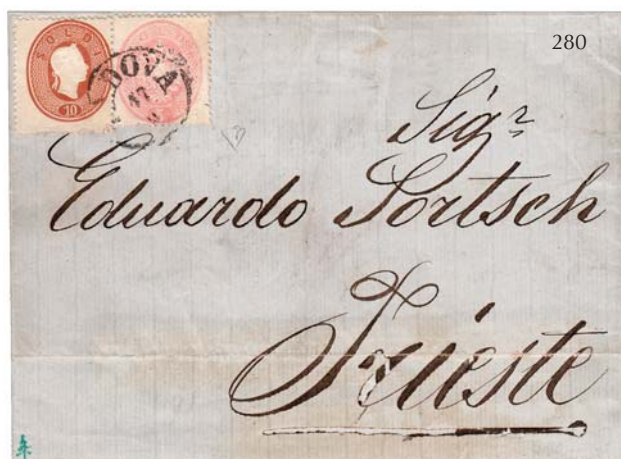 280
SOLDI
10
DOVA
17
Sigr
Eduardo Sortsch
Trieste